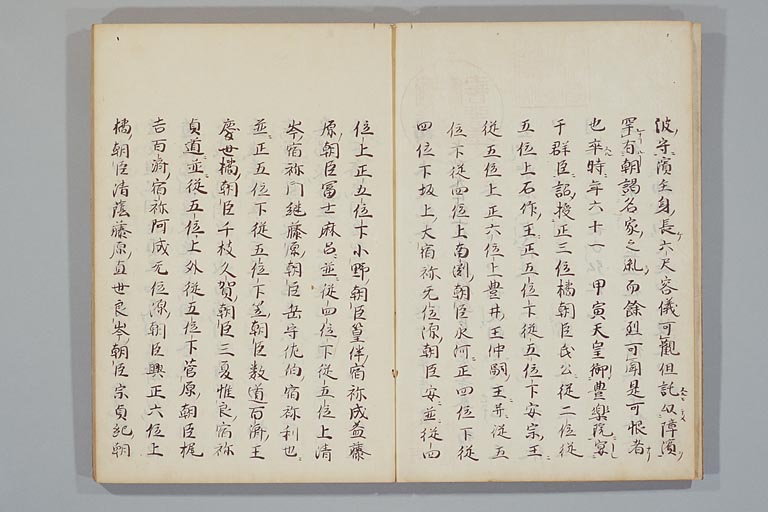 波守濱主身長六尺容儀可觀但託以障濱
罕有朝謁名家之風而餘烈可聞是可恨者
也卒時年六十一 甲寅天皇御豊樂院宴
千群臣詔授正三位橘朝臣氏公從二位從
五位上石作王正五位下從五位下安宗王
從五位上正六位上豊井王仲嗣王井從五
位下從四位上南淵朝臣永河正四位下從
四位下坂上大宿祢 元位源朝臣安並從四
位上正五位下小野朝臣篁伴宿祢成益藤
原朝臣冨士麻呂並從四位下從五位上清
岑宿祢門継藤原朝臣岳守佐伯宿祢利也
並正五位下從五位下笠朝臣数道百濟王
慶世橘朝臣千枝久賀朝臣三夏惟良宿祢
貞道並從五位上外從五位下菅原朝臣梶
吉百濟宿祢阿成元位源朝臣興正六位上
橘朝臣清蔭藤原直世良岑朝臣宗貞紀朝